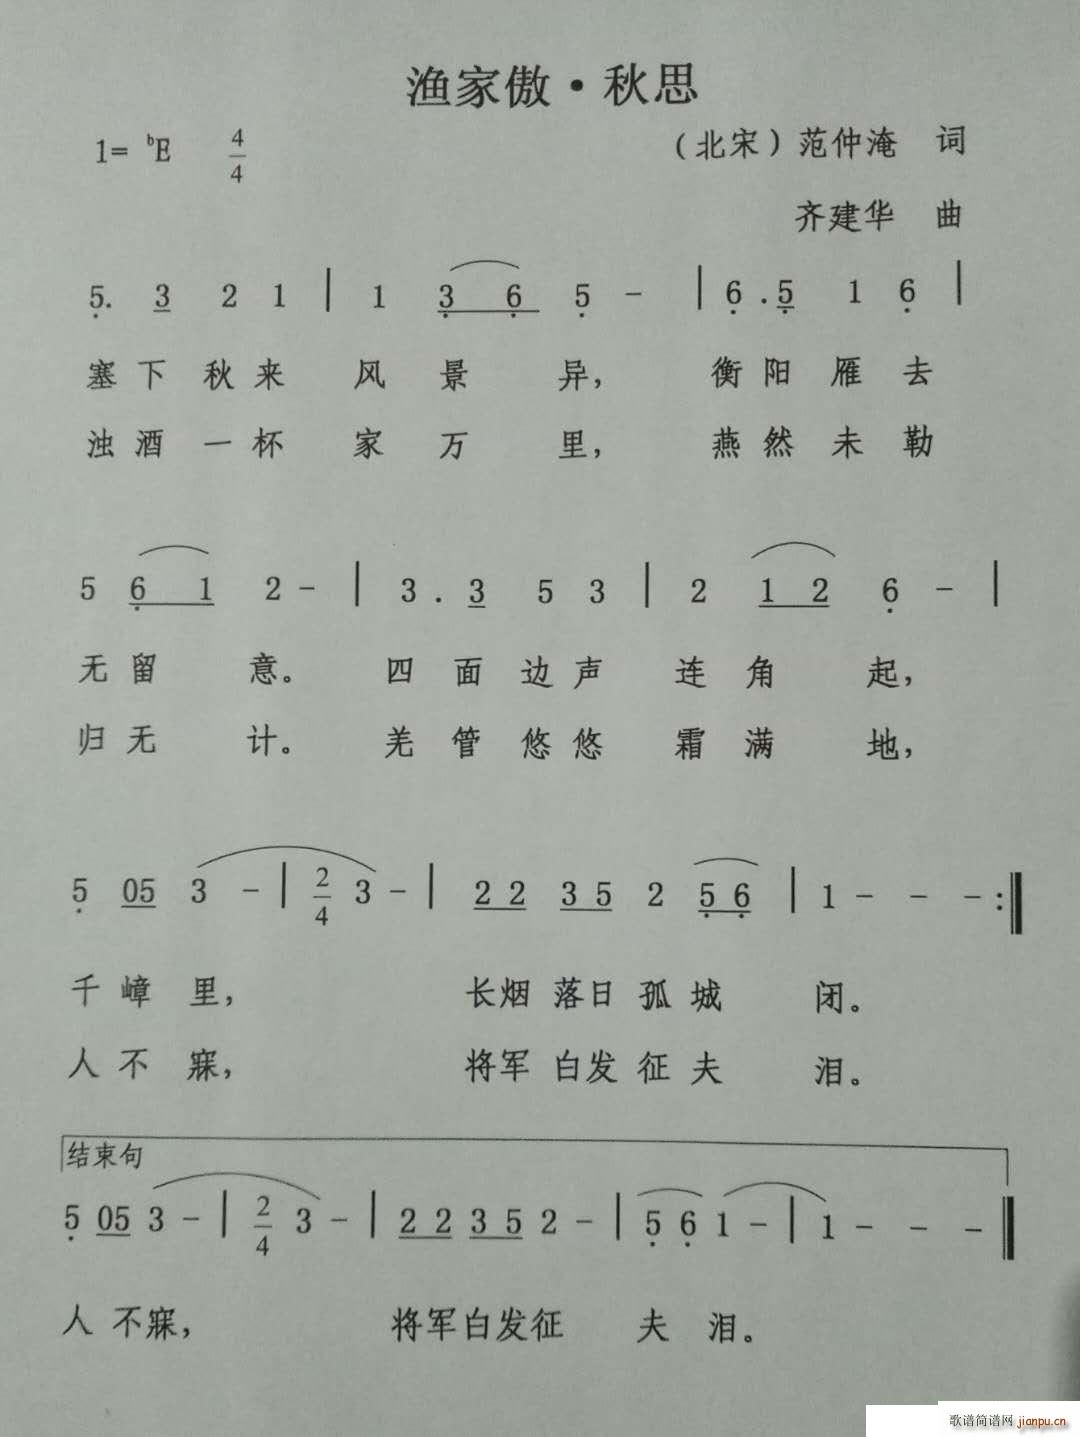 渔家傲·秋思
1= ♭E 4/4 （北宋）范仲淹 词
齐建华 曲
5. 3 2 1 | 1 3 6 5 - | 6 . 5 1 6 |
塞下秋来 风景 异， 衡阳雁去
浊酒一杯 家万 里， 燕然未勒
5 6 1 2 - | 3 . 3 5 3 | 2 1 2 6 - |
无留 意。 四面边声 连角 起，
归无 计。 羌管悠悠 霜满 地，
5 05 3 - | 2/4 3 - | 2 2 3 5 2 5 6 | 1 - - - :‖
千嶂里， 长烟 落日 孤城 闭。
人不寐， 将军 白发 征夫 泪。
结束句
5 05 3 - | 2/4 3 - | 2 2 3 5 2 - | 5 6 1 - | 1 - - - ‖
人不寐， 将军白发征 夫 泪。
歌谱简谱网 jianpu.cn